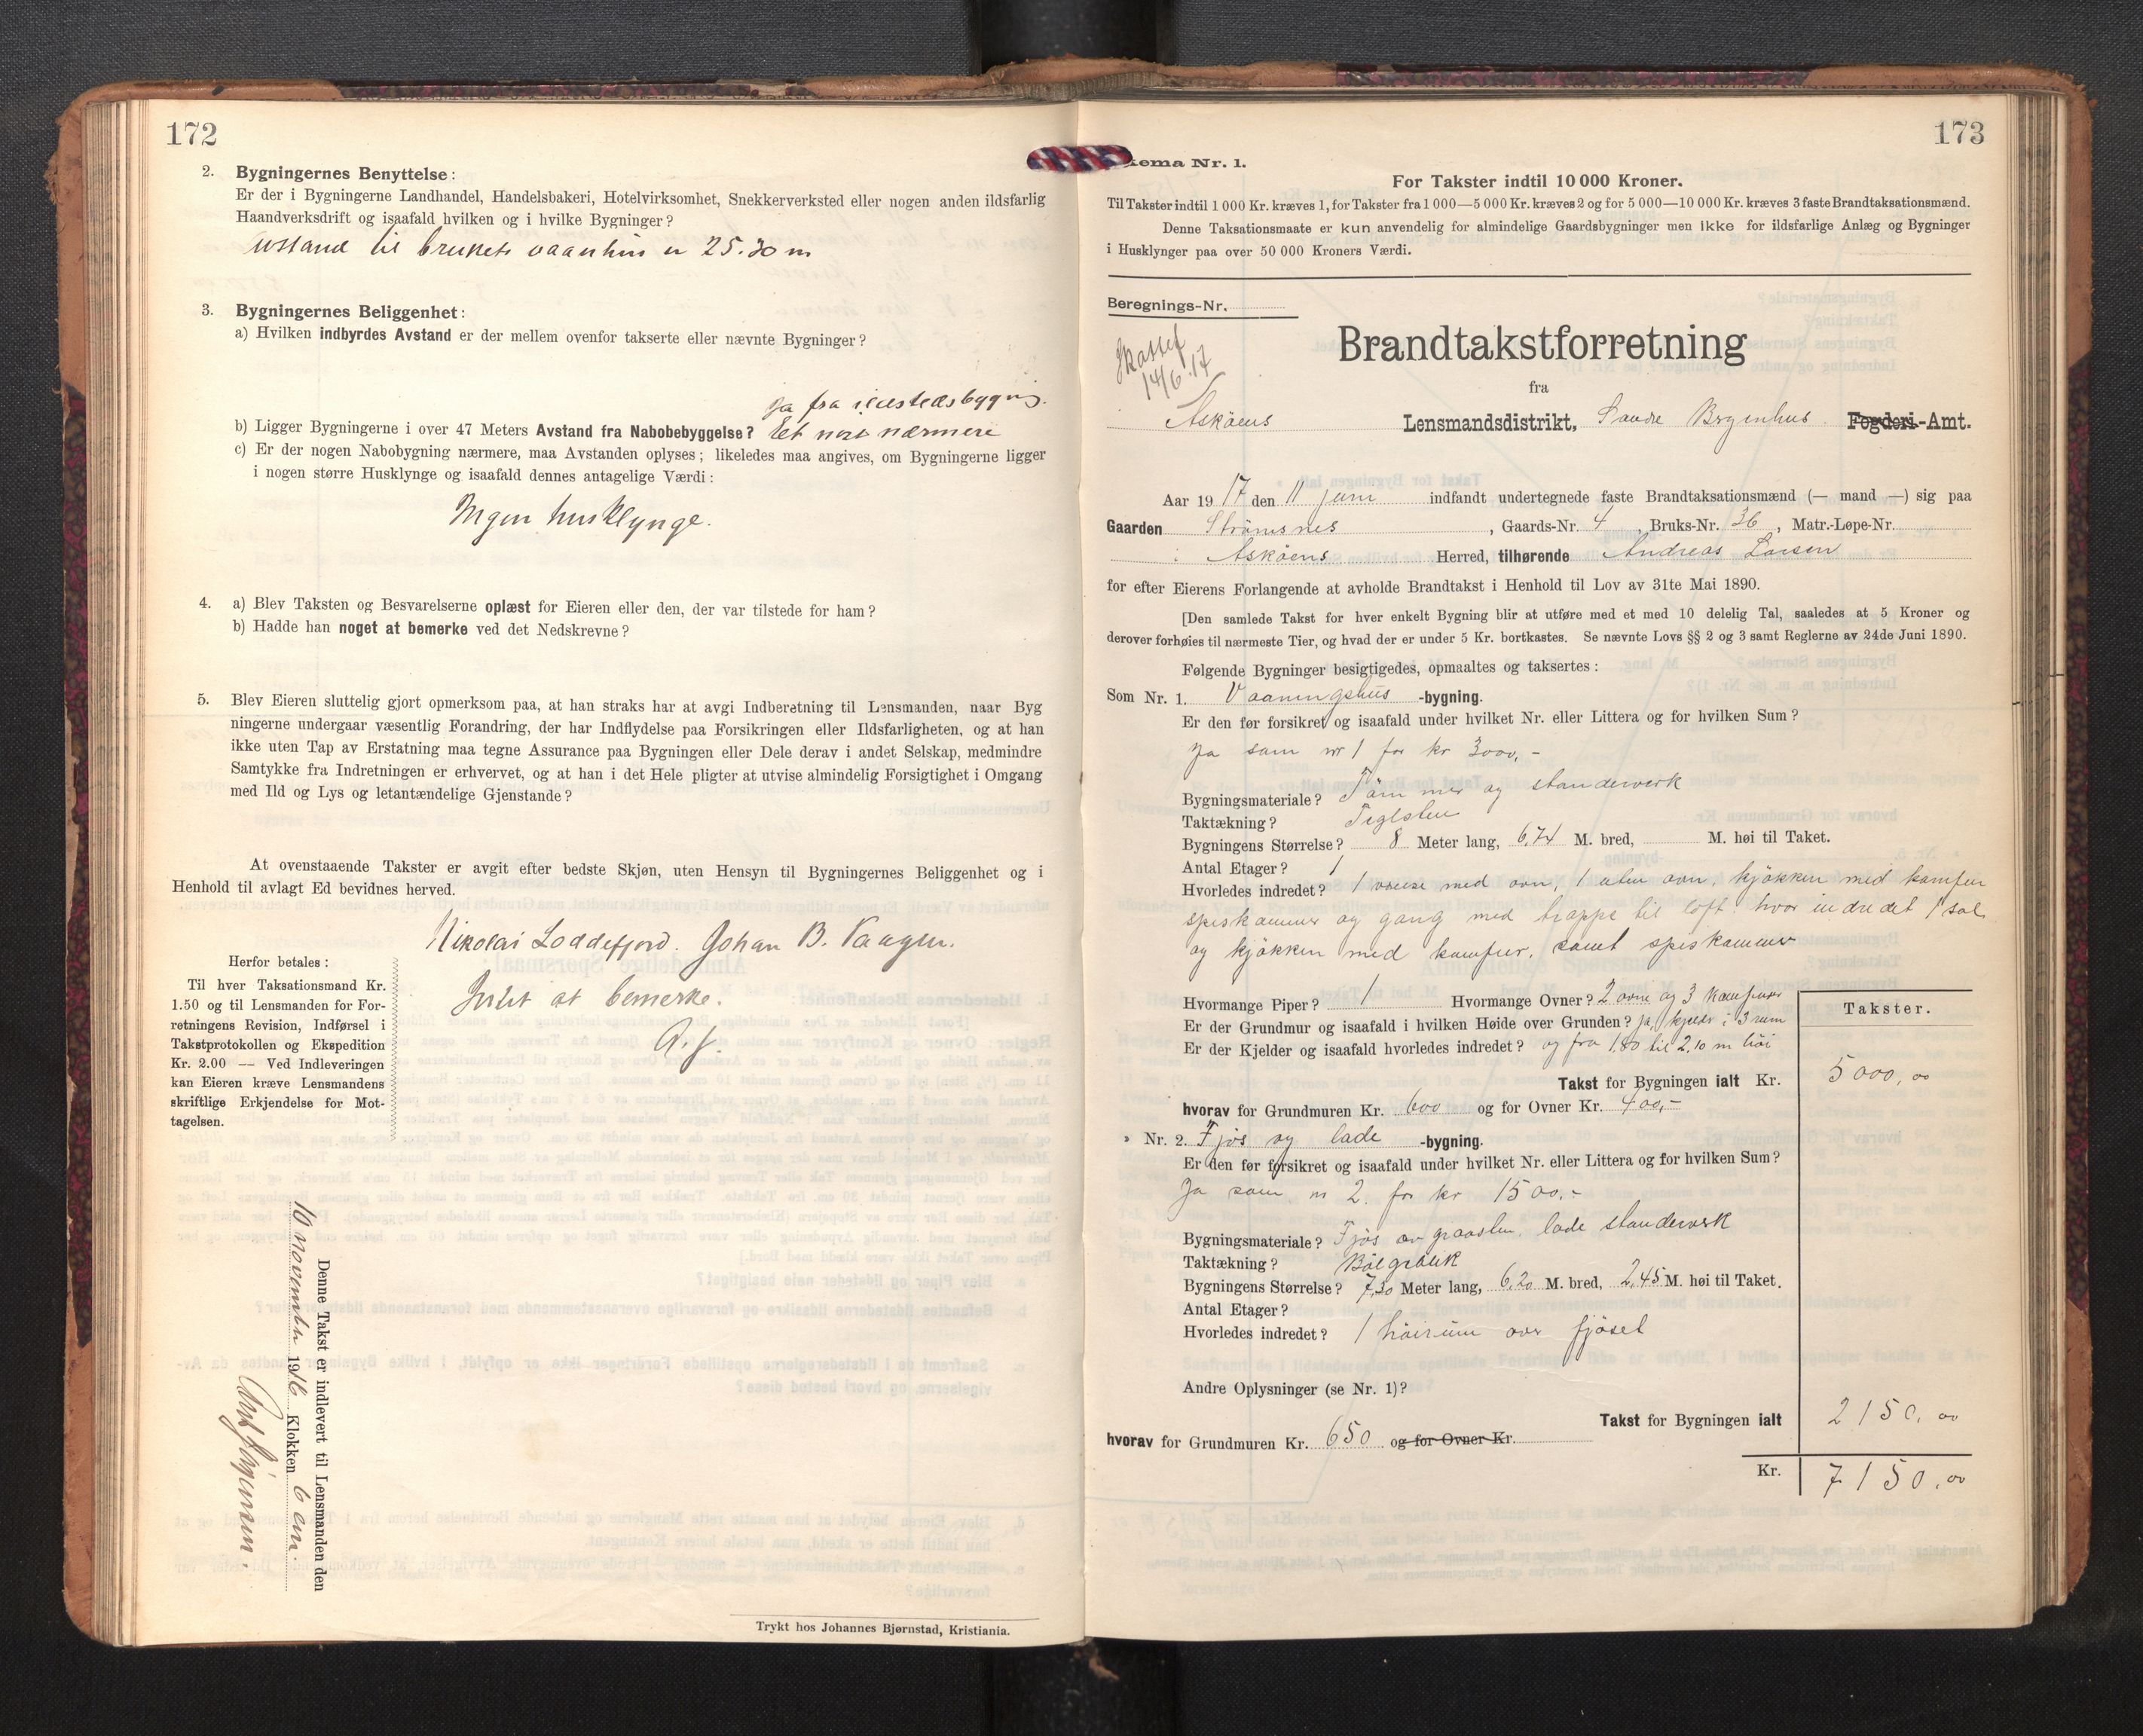 172
2. Bygningernes Benyttelse:
Er der i Bygningerne Landhandel, Handelsbakeri, Hotelvirksomhet, Snekkerverksted eller nogen anden ildsfarlig
Haandverksdrift og isaafald hvilken og i hvilke Bygninger?
til brukets er 25.30 m
3. Bygningernes Beliggenhet:
a) Hvilken indbyrdes Avstand er der mellem ovenfor takserte eller nævnte Bygninger?
ja fra
b) Ligger Bygningerne i over 47 Meters Avstand fra Nabobebyggelse? nærmere
c) Er der nogen Nabobygning nærmere, maa Avstanden oplyses; likeledes maa angives, om Bygningerne ligger
i nogen større Husklynge og isaafald dennes antagelige Værdi:
Ingen husklynge.
4. a) Blev Taksten og Besvarelserne oplæst for Eieren eller den, der var tilstede for ham?
b) Hadde han noget at bemerke ved det Nedskrevne?
5. Blev Eieren sluttelig gjort opmerksom paa, at han straks har at avgi Indberetning til Lensmanden, naar Byg
ningerne undergaar væsentlig Forandring, der har Indflydelse paa Forsikringen eller Ildsfarligheten, og at han
ikke uten Tap av Erstatning maa tegne Assurance paa Bygningen eller Dele derav i andet Selskap, medmindre
Samtykke fra Indretningen er erhvervet, og at han i det Hele pligter at utvise almindelig Forsigtighet i Omgang
med Ild og Lys og letantændelige Gjenstande?
At ovenstaaende Takster er avgit efter bedste Skjøn, uten Hensyn til Bygningernes Beliggenhet og i
Henhold til avlagt Ed bevidnes herved.
Nikolai Loddefjord. Johan B. Vaagen.
Intet at bemerke.
A. J.
Herfor betales:
Til hver Taksationsmand Kr.
1.50 og til Lensmanden for For-
retningens Revision, Indførsel i
Takstprotokollen og Ekspedition
Kr. 2.00 — Ved Indleveringen
kan Eieren kræve Lensmandens
skriftlige Erkjendelse for Mot-
tagelsen.
Denne Takst er indlevert til Lensmanden den
10 november 1916 Klokken 6 em.
Trykt hos Johannes Bjørnstad, Kristiania.
173
ema Nr. 1.
For Takster indtil 10 000 Kroner.
Til Takster indtil 1 000 Kr. kræves 1, for Takster fra 1 000—5 000 Kr. kræves 2 og for 5 000—10 000 Kr. kræves 3 faste Brandtaksationsmænd.
Denne Taksationsmaate er kun anvendelig for almindelige Gaardsbygninger men ikke for ildsfarlige Anlæg og Bygninger
i Husklynger paa over 50 000 Kroners Værdi.
Beregnings-Nr.
14/6 17
Brandtakstforretning
fra
Askøens Lensmandsdistrikt, Søndre Bergenhus Fogderi-Amt.
Aar 1917 den 11 juni indfandt undertegnede faste Brandtaksationsmænd (— mand —) sig paa
Gaarden Strømsnes, Gaards-Nr. 4, Bruks-Nr. 36, Matr.-Løpe-Nr.
i Askøens Herred, tilhørende Andreas Larsen
for efter Eierens Forlangende at avholde Brandtakst i Henhold til Lov av 31te Mai 1890.
[Den samlede Takst for hver enkelt Bygning blir at utføre med et med 10 delelig Tal, saaledes at 5 Kroner og
derover forhøies til nærmeste Tier, og hvad der er under 5 Kr. bortkastes. Se nævnte Lovs §§ 2 og 3 samt Reglerne av 24de Juni 1890.
Følgende Bygninger besigtigedes, opmaaltes og taksertes:
Som Nr. 1. Vaaningshus -bygning.
Er den før forsikret og isaafald under hvilket Nr. eller Littera og for hvilken Sum?
Ja som nr 1 for kr 3000,-
Bygningsmateriale? Tømmer og standerverk
Taktækning? Teglsten
Bygningens Størrelse? 8 Meter lang, 6,74 M. bred, M. høi til Taket.
Antal Etager? 1
Hvorledes indredet? 1 med ovn, 1 uten ovn, kjøkken med komfur
spiskammer og gang med trappe til loft hvor indredet 1 sal
og kjøkken med komfur, samt spiskammer
Hvormange Piper? 1 Hvormange Ovner? 2 ovne og 3 komfurer
Er der Grundmur og isaafald i hvilken Høide over Grunden? Ja, kjelder i 3 rum
Er der Kjelder og isaafald hvorledes indredet? og fra 1,80 til 2,10 m høi
Takster.
Takst for Bygningen ialt Kr. 5000,00
hvorav for Grundmuren Kr. 600 og for Ovner Kr. 400,-
" Nr. 2. Fjøs og lade -bygning.
Er den før forsikret og isaafald under hvilket Nr. eller Littera og for hvilken Sum?
Ja som nr 2. for kr 1500.-
Bygningsmateriale? Fjøs av graasten, lade standerverk
Taktækning? Bølgeblik
Bygningens Størrelse? 7,30 Meter lang, 6,20 M. bred, 2,45 M. høi til Taket.
Antal Etager?
Hvorledes indredet? 1 høirum over fjøset
Andre Oplysninger (se Nr. 1)?
Takst for Bygningen ialt 2150,00
hvorav for Grundmuren Kr. 650 og for Ovner Kr.
Kr. 7150,00